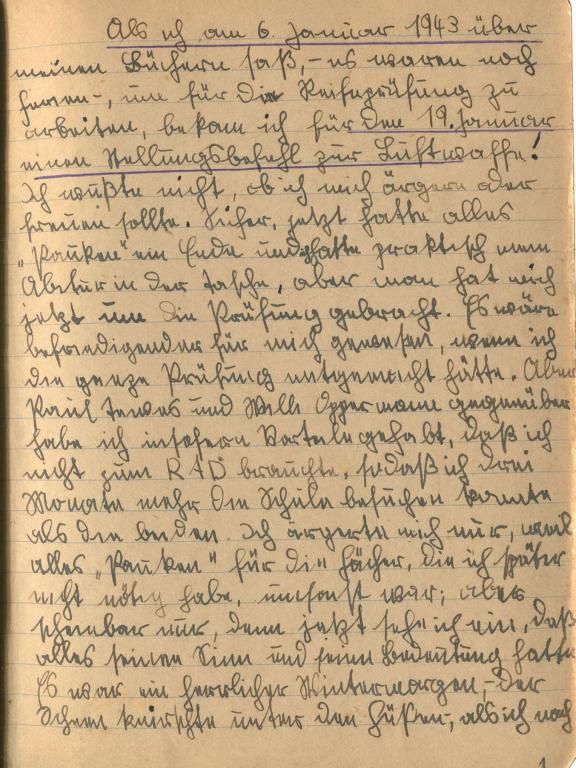 Als ich am 6. Januar 1943 über
meinen Büchern saß, - es waren noch
Ferien -, um für die Reifeprüfung zu
arbeiten, bekam ich für den 19. Januar
einen Stellungsbefehl zur Luftwaffe!
Ich wußte nicht, ob ich mich ärgern oder
freuen sollte. Sicher, jetzt hatte alles
„Pauken" ein Ende und hatte praktisch mein
Abitur in der Tasche, aber man hat mich
jetzt um die Prüfung gebracht. Es wäre
befriedigender für mich gewesen, wenn ich
die ganze Prüfung mitgemacht hätte. Aber
Paul Tewes und Willi Oppermann gegenüber
habe ich insofern Vorteile gehabt, daß ich
nicht zum RAD brauchte, sodaß ich drei
Monate mehr die Schule besuchen konnte
als die beiden. Ich ärgerte mich nur, weil
alles „Pauken" für die Fächer, die ich später
nicht nötig habe, umsonst war; aber
scheinbar nur, denn jetzt sehe ich ein, daß
alles seinen Sinn und seine Bedeutung hatte.
Es war ein herrlicher Wintermorgen, - der
Schnee knirschte unter den Füßen -, als ich nach
1